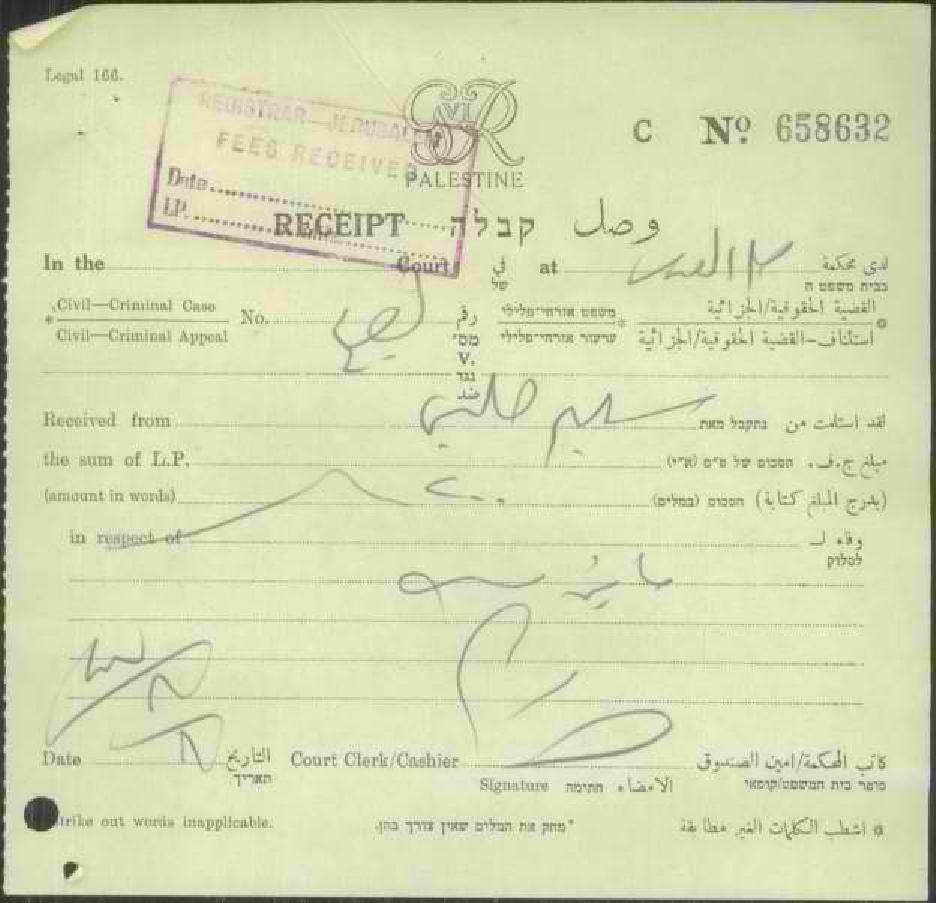 Legal 166.
REGISTRAR JERUSALEM
FEES RECEIVED
Date
LP.
GR VI
PALESTINE
C No 658632
RECEIPT קבלה وصل
In the Court في של at القدس لدى محكمة בבית משפט ה
Civil—Criminal Case No. رقم משפט אזרחי־פלילי القضية الحقوقية/الجزائية
* מס' *
Civil—Criminal Appeal ערעור אזרחי־פלילי استئناف-القضية الحقوقية/الجزائية
V.
נגד
ضد
Received from سليم נתקבל מאת لقد استلمت من
the sum of L.P. הסכום של פ״פ (א״י) مبلغ ج.ف.
(amount in words) הסכום (במלים) (يدرج المبلغ كتابة)
in respect of وفاء لـ
לסלוק
Date التاريخ Court Clerk/Cashier كاتب المحكمة/امين الصندوق
תאריך Signature חתימה الامضاء סופר בית המשפט/קופאי
strike out words inapplicable. *מחק את המלים שאין צורך בהן. * اشطب الكلمات الغير مطابقة